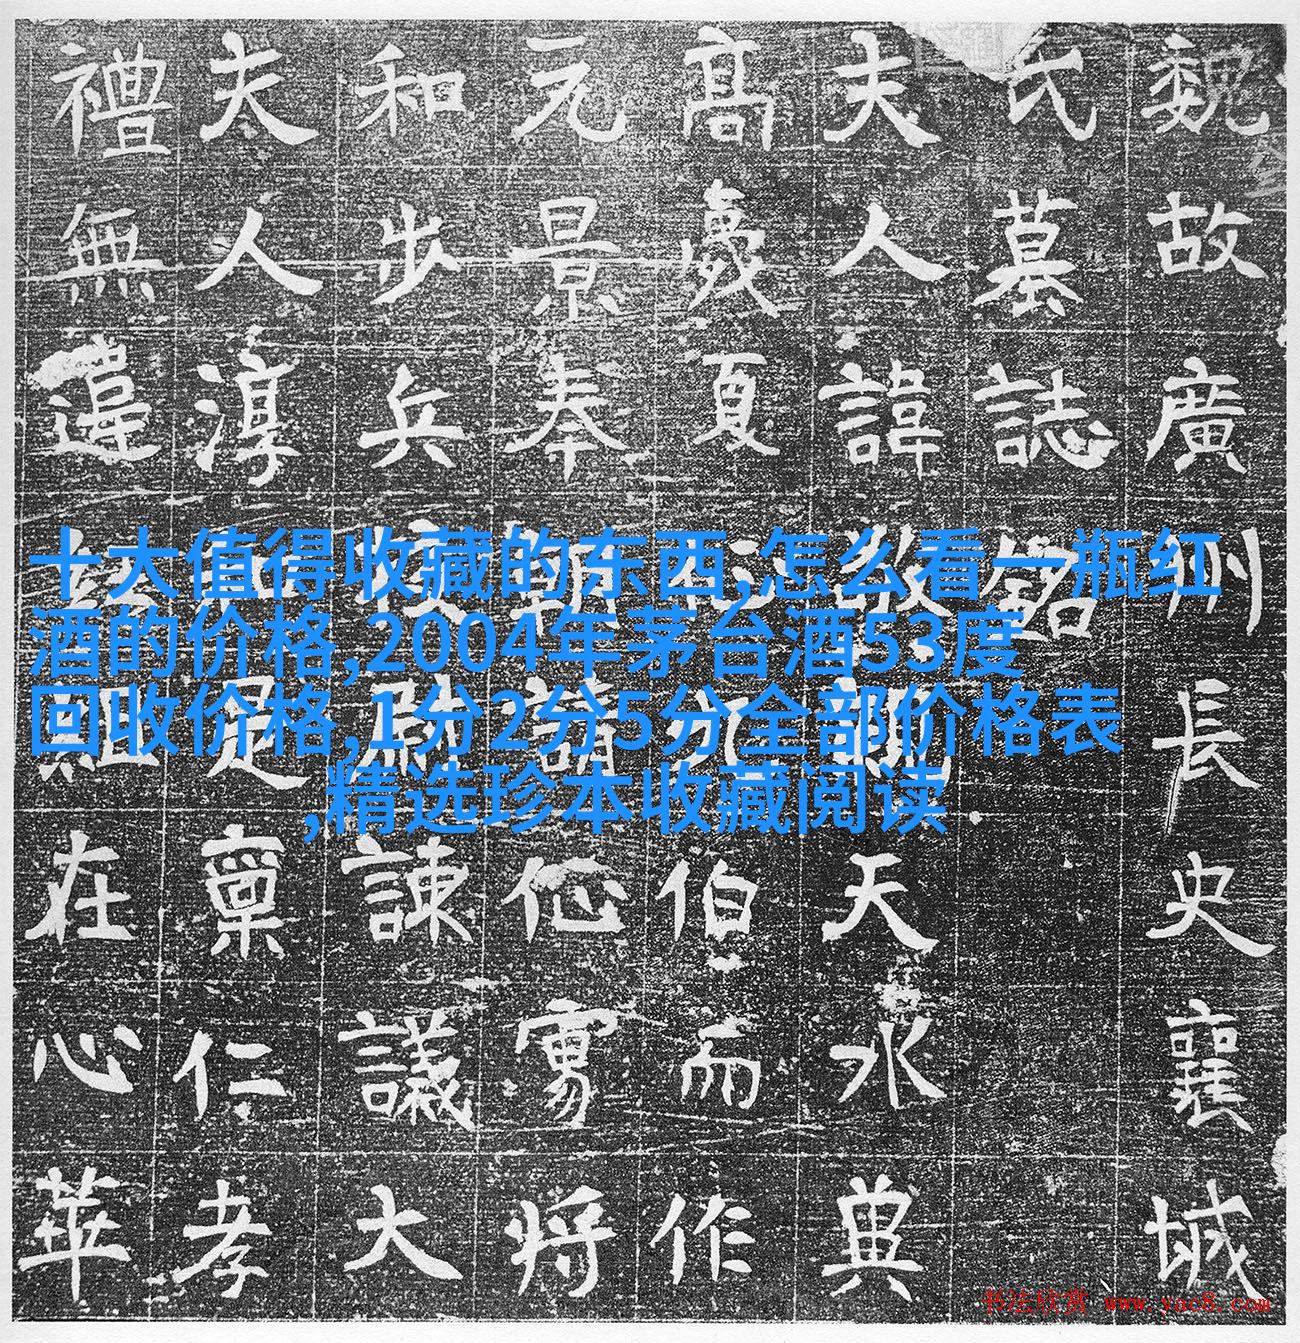 魏故廣州長史襄城
氏墓誌銘
夫人諱敬親天水典
高伯而作
元景奉朝請將
和步兵校尉諫議大
夫人淳足稟仁孝
禮無違在心華
十大值得收藏的东西,怎么看一瓶红
酒的价格,2004年茅台酒53度
回收价格,1分2分5分全部价格表
,精选珍本收藏阅读
书法欣赏 www.yac8.com